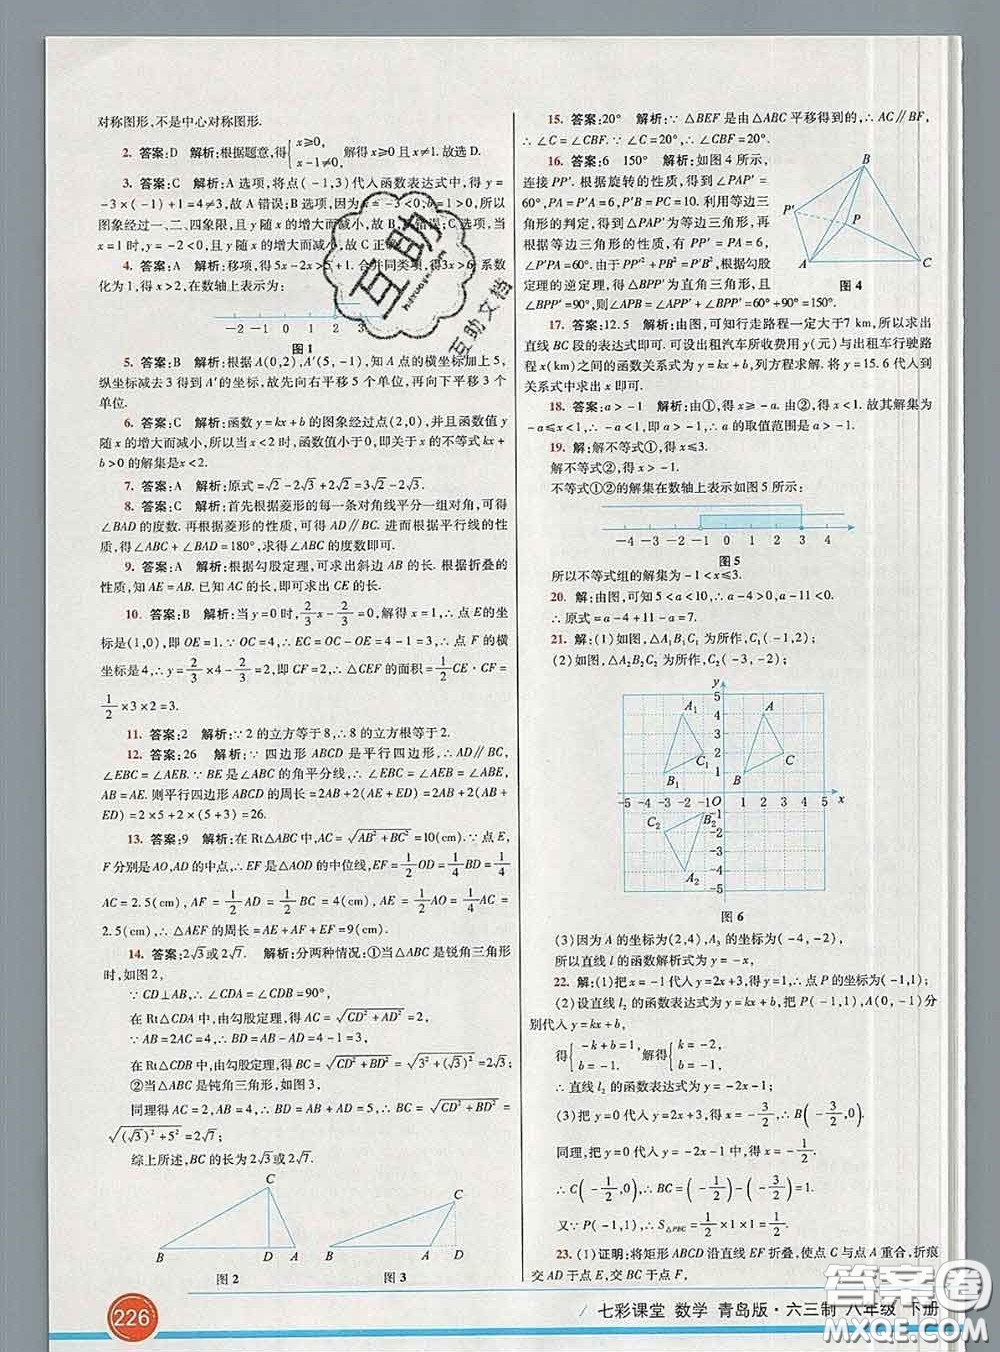 对称图形,不是中心对称图形.
2. 答案:D 解析:根据题意,得{x≥0, x-1≠0, 解得 x≥0 且 x≠1. 故选 D.
3. 答案:C 解析:A 选项,将点(-1,3)代入函数表达式中,得 y=
-3×(-1)+1=4≠3,故 A 错误;B 选项,因为 k=-3<0,b=1>0,所以
图象经过一、二、四象限,且 y 随 x 的增大而减小,故 B 错误;C 选项,当
x=1 时,y=-2<0,且 y 随 x 的增大而减小,故 C 正确.
4. 答案:A 解析:移项,得 5x-2x>5+1. 合并同类项,得3x>6. 系数
化为 1,得 x>2,在数轴上表示为:
-2 -1 0 1 2 3
图 1
5. 答案:B 解析:根据 A(0,2),A′(5,-1),知 A 点的横坐标加上 5,
纵坐标减去 3 得到 A′的坐标,故先向右平移 5 个单位,再向下平移 3 个
单位.
6. 答案:C 解析:函数 y=kx+b 的图象经过点(2,0),并且函数值 y
随 x 的增大而减小,所以当 x<2 时,函数值小于 0,即关于 x 的不等式 kx
+b>0 的解集是 x<2.
7. 答案:A 解析:原式=√2-2√3+2√2=3√2-2√3.
8. 答案:C 解析:首先根据菱形的每一条对角线平分一组对角,可得
∠BAD 的度数. 再根据菱形的性质,可得 AD∥BC. 进而根据平行线的性
质,可得∠ABC+∠BAD=180°,求出∠ABC 的度数即可.
9. 答案:A 解析:根据勾股定理,可求出斜边 AB 的长. 根据折叠的
性质,知 AE=AB. 已知 AC 的长,可求出 CE 的长.
10. 答案:B 解析:当 y=0 时,2/3x-2/3=0,解得 x=1,∴点 E的坐
标是(1,0),即 OE=1.∵OC=4,∴EC=OC-OE=4-1=3,∴点 F 的横
坐标是 4,∴y=2/3×4-2/3=2,即 CF=2,∴△CEF 的面积=1/2CE·CF=
1/2×3×2=3.
11. 答案:2 解析:∵2 的立方等于 8,∴8 的立方根等于 2.
12. 答案:26 解析:∵四边形 ABCD 是平行四边形,∴AD∥BC,
∠EBC=∠AEB.∵BE 是∠ABC 的角平分线,∴∠EBC=∠ABE,∴
AB=AE. 则平行四边形 ABCD 的周长=2AB+2AD=2AB+2(AE+
ED)=2×5+2×(5+3)=26.
13. 答案:9 解析:在 Rt△ABC 中,AC=√AB²+BC²=10(cm).∵点 E,
F 分别是 AO,AD 的中点,∴EF 是△AOD 的中位线,EF=1/2OD=1/4BD=1/4
AC=2.5(cm),AF=1/2AD=1/2BC=4(cm),AE=1/2AO=1/4AC=
2.5(cm),∴△AEF 的周长=AE+AF+EF=9(cm).
14. 答案:2√3或 2√7. 解析:分两种情况:①当△ABC 是锐角三角形
时,如图 2,
∵CD⊥AB,∴∠CDA=∠CDB=90°,
在 Rt△CDA 中,由勾股定理,得 AC=√CD²+AD²=2,
∵AB=2AC,∴AB=4,∴BD=3,
在 Rt△CDB 中,由勾股定理,得 BC=√CD²+BD²=√3²+(√3)²=2√3;
②当△ABC 是钝角三角形,如图 3,
同理得 AC=2,AB=4,∴BD=5,∴BC=√CD²+BD²=
√(√3)²+5²=2√7;
综上所述,BC 的长为 2√3或 2√7.
C
B D A
图 2
C
B A D
图 3
226
15. 答案:20° 解析:∵△BEF 是由△ABC 平移得到的,∴AC∥BF,
∴∠C=∠CBF.∵∠C=20°,∴∠CBF=20°.
16. 答案:6 150° 解析:如图 4 所示,
连接 PP′. 根据旋转的性质,得到∠PAP′=
60°,PA=P′A=6,P′B=PC=10. 利用等边三
角形的判定,得到△PAP′为等边三角形,再
根据等边三角形的性质,有 PP′=PA=6,
∠P′PA=60°. 由于 PP′²+PB²=P′B²,根据勾股
定理的逆定理,得到△BPP′为直角三角形,且
∠BPP′=90°,则∠APB=∠P′PB+∠BPP′=60°+90°=150°.
B
P′
P
A C
图 4
17. 答案:12.5 解析:由图,可知行走路程一定大于7 km,所以求出
直线 BC 段的表达式即可. 可设出租汽车所收费用 y(元)与出租车行驶路
程 x(km)之间的函数关系式为 y=kx+b,列方程求解. 将 y=15.6 代入到
关系式中求出 x 即可.
18. 答案:a>-1 解析:由①,得 x≥-a. 由②,得 x<1. 故其解集为
-a≤x<1,∴-a<1,即 a>-1,∴a 的取值范围是 a>-1.
19. 解:解不等式①,得 x≤3.
解不等式②,得 x>-1.
不等式①②的解集在数轴上表示如图 5 所示:
-4 -3 -2 -1 0 1 2 3 4
图 5
所以不等式组的解集为-1<x≤3.
20. 解:由图,可知 5<a<10,∴a-4>0,a-11<0,
∴原式=a-4+11-a=7.
21. 解:(1)如图,△A₁B₁C₁ 为所作,C₁(-1,2);
(2)如图,△A₂B₂C₂ 为所作,C₂(-3,-2);
y
5
4
3
2
1
A₁ A
C₁ C
B₁ B
-5 -4 -3 -2 -1 O 1 2 3 4 5 x
B₂
C₂
A₂
-1
-2
-3
-4
-5
图 6
(3)因为 A 的坐标为(2,4),A₃ 的坐标为(-4,-2),
所以直线 l 的函数解析式为 y=-x,
22. 解:(1)把 x=-1 代入 y=2x+3,得 y=1,∴点 P 的坐标为(-1,1);
(2)设直线 l₂ 的函数表达式为 y=kx+b,把 P(-1,1),A(0,-1)分
别代入 y=kx+b,
得{-k+b=1, b=-1. 解得{k=-2, b=-1.
∴直线 l₂ 的函数表达式为 y=-2x-1;
(3)把 y=0 代入 y=2x+3,得 x=-3/2,∴B(-3/2,0).
同理,把 y=0 代入 y=-2x-1,得 x=-1/2.
∴C(-1/2,0),∴BC=(-1/2)-(-3/2)=1.
又∵P(-1,1),∴S△PBC=1/2×1×1=1/2.
23. (1)证明:将矩形 ABCD 沿直线 EF 折叠,使点 C 与点 A 重合,折痕
交 AD 于点 E,交 BC 于点 F,
七彩课堂 数学 青岛版·六三制 八年级 下册
互助
互助文档
答案圈
MXQE.COM